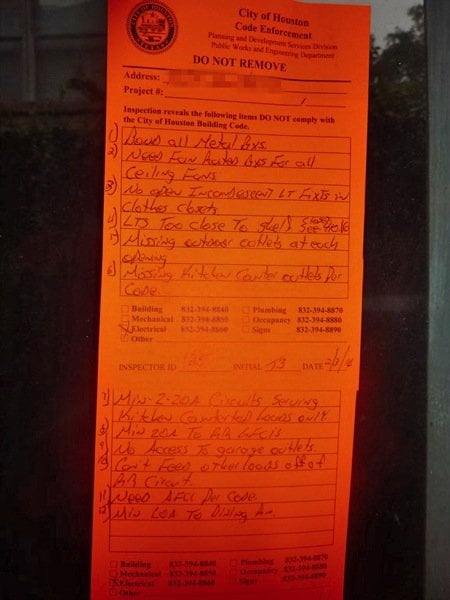 City of Houston
Code Enforcement
Planning and Development Services Division
Public Works and Engineering Department
DO NOT REMOVE
Address:
Project #:
Inspection reveals the following items DO NOT comply with
the City of Houston Building Code.
1) Bond all Metal Bxs.
2) Need Fan Rated Bxs For all
Ceiling Fans
3) No open Incandescent LT Fixts in
clothes closets
4) LTS Too Close To shelf
5) Missing outdoor outlets at each
opening
6) Missing Kitchen Counter outlets Per
Code.
Building 832-394-8840
Plumbing 832-394-8870
Mechanical 832-394-8850
Occupancy 832-394-8880
Electrical 832-394-8860
Signs 832-394-8890
Other
INSPECTOR ID INITIAL DATE
7) Min-2-20A Circuits Serving
Kitchen Countertop Loads only
8) Min 20A To BR GFCIs
9) No Access To garage outlets.
10) Can't Feed other loads off of
BR Circuit.
11) Need AFCI Per Code.
12) Min 20A To Dining Rm.
Building 832-394-8840
Plumbing 832-394-8870
Mechanical 832-394-8850
Occupancy 832-394-8880
Electrical 832-394-8860
Signs 832-394-8890
Other